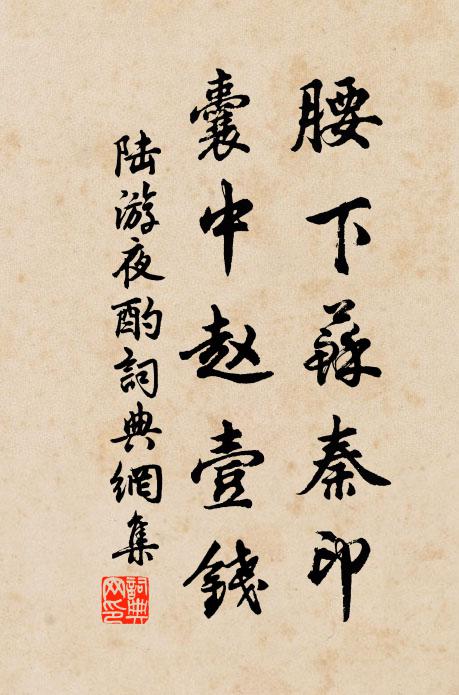 腰下蘇秦印
囊中赵壹錢
陆游夜酌詞典網集
詞典网印